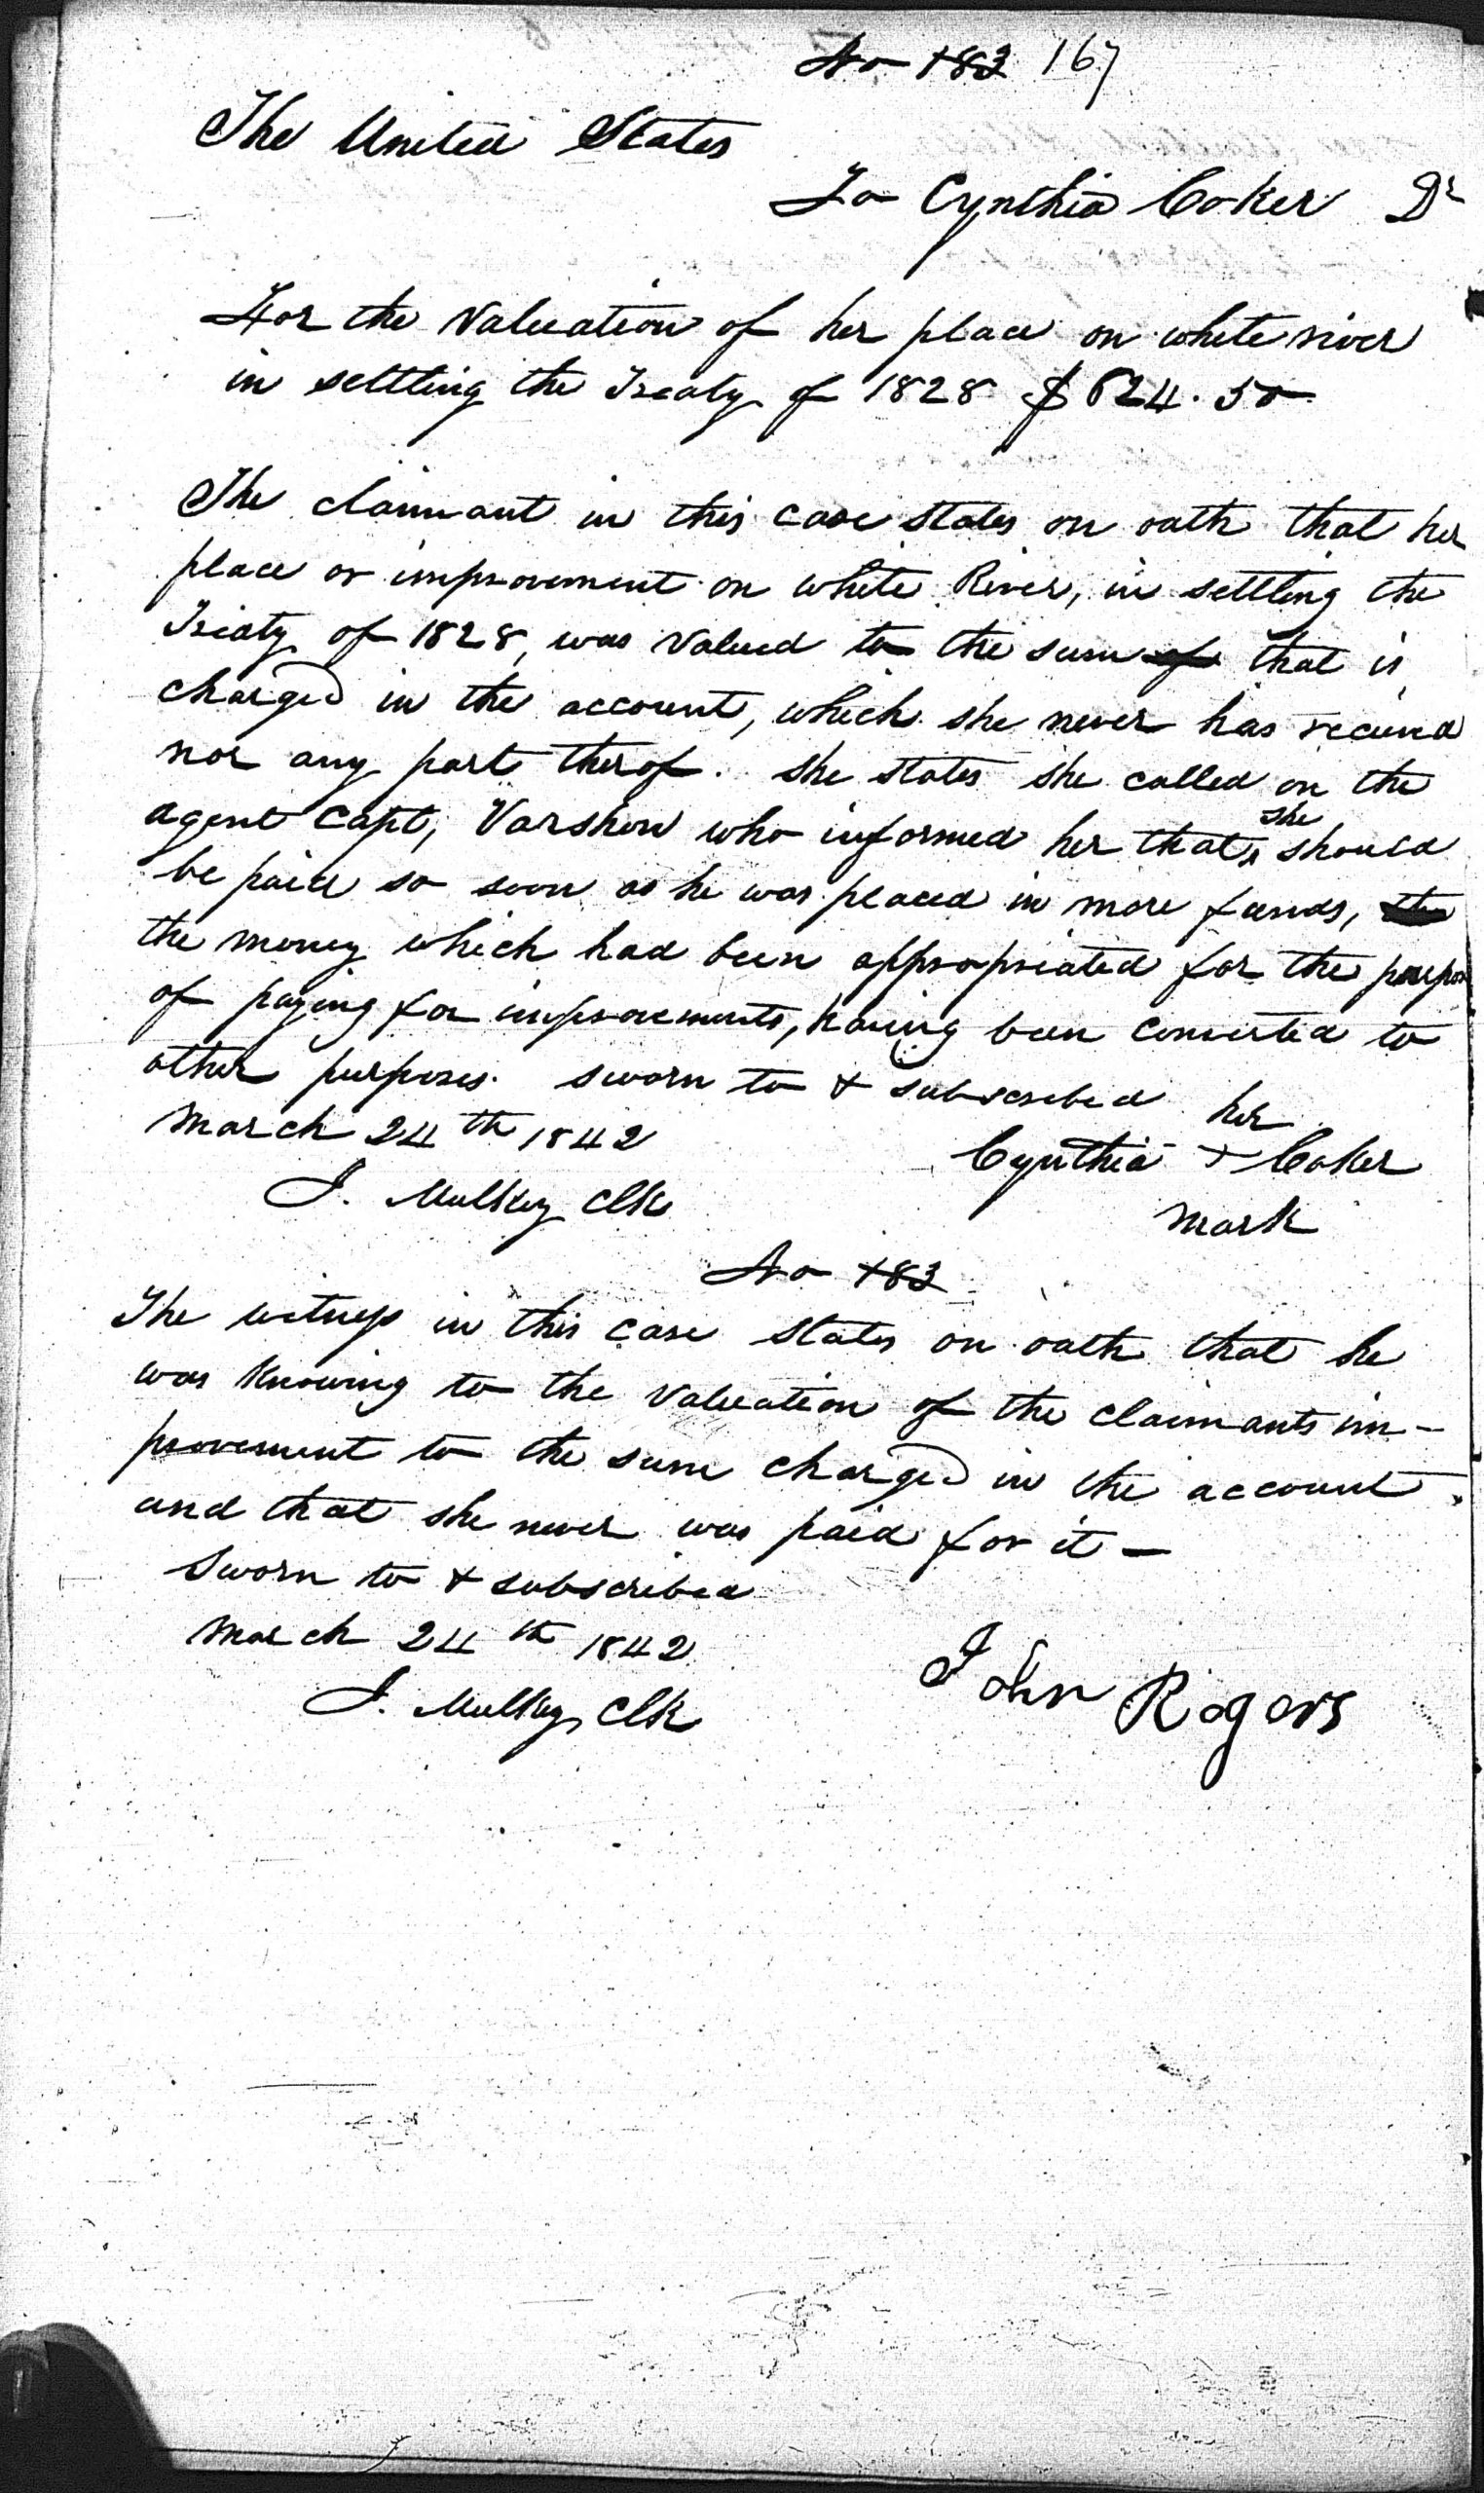 No 183 167
The United States
To Cynthia Coker Dr
For the Valuation of her place on white river
in settling the Treaty of 1828 $624.50
The claimant in this case states on oath that her
place or improvement on white River, in settling the
Treaty of 1828, was valued to the sum of that is
charged in the account, which she never has received
nor any part therof. She states she called on the
agent Capt, Varshow who informed her that she should
be paid so soon as he was placed in more funds,
the money which had been appropriated for the purpose
of paying for improvements, having been converted to
other purposes. Sworn to & subscribed
March 24th 1842
her
Cynthia + Coker
mark
J. Mulkey Clk
No 183
The witness in this case states on oath that he
was Knowing to the valuation of the claimants im-
provement to the sum charged in the account.
and that she never was paid for it —
Sworn to & subscribed
March 24th 1842
J. Mulkey, Clk
John Rogers